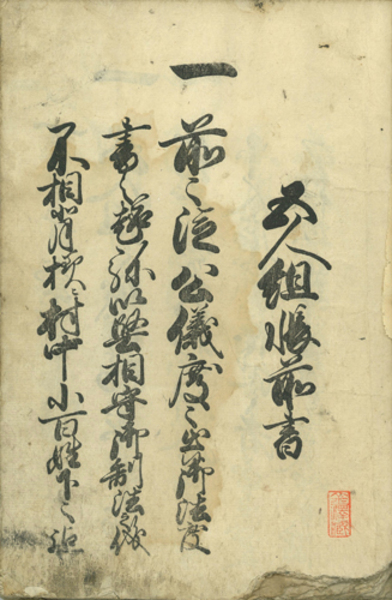 五人組帳前書
一 前々従公儀度々出御法度
書之趣弥以堅相守御制法之儀
不相背様ニ村中小百姓下々迄